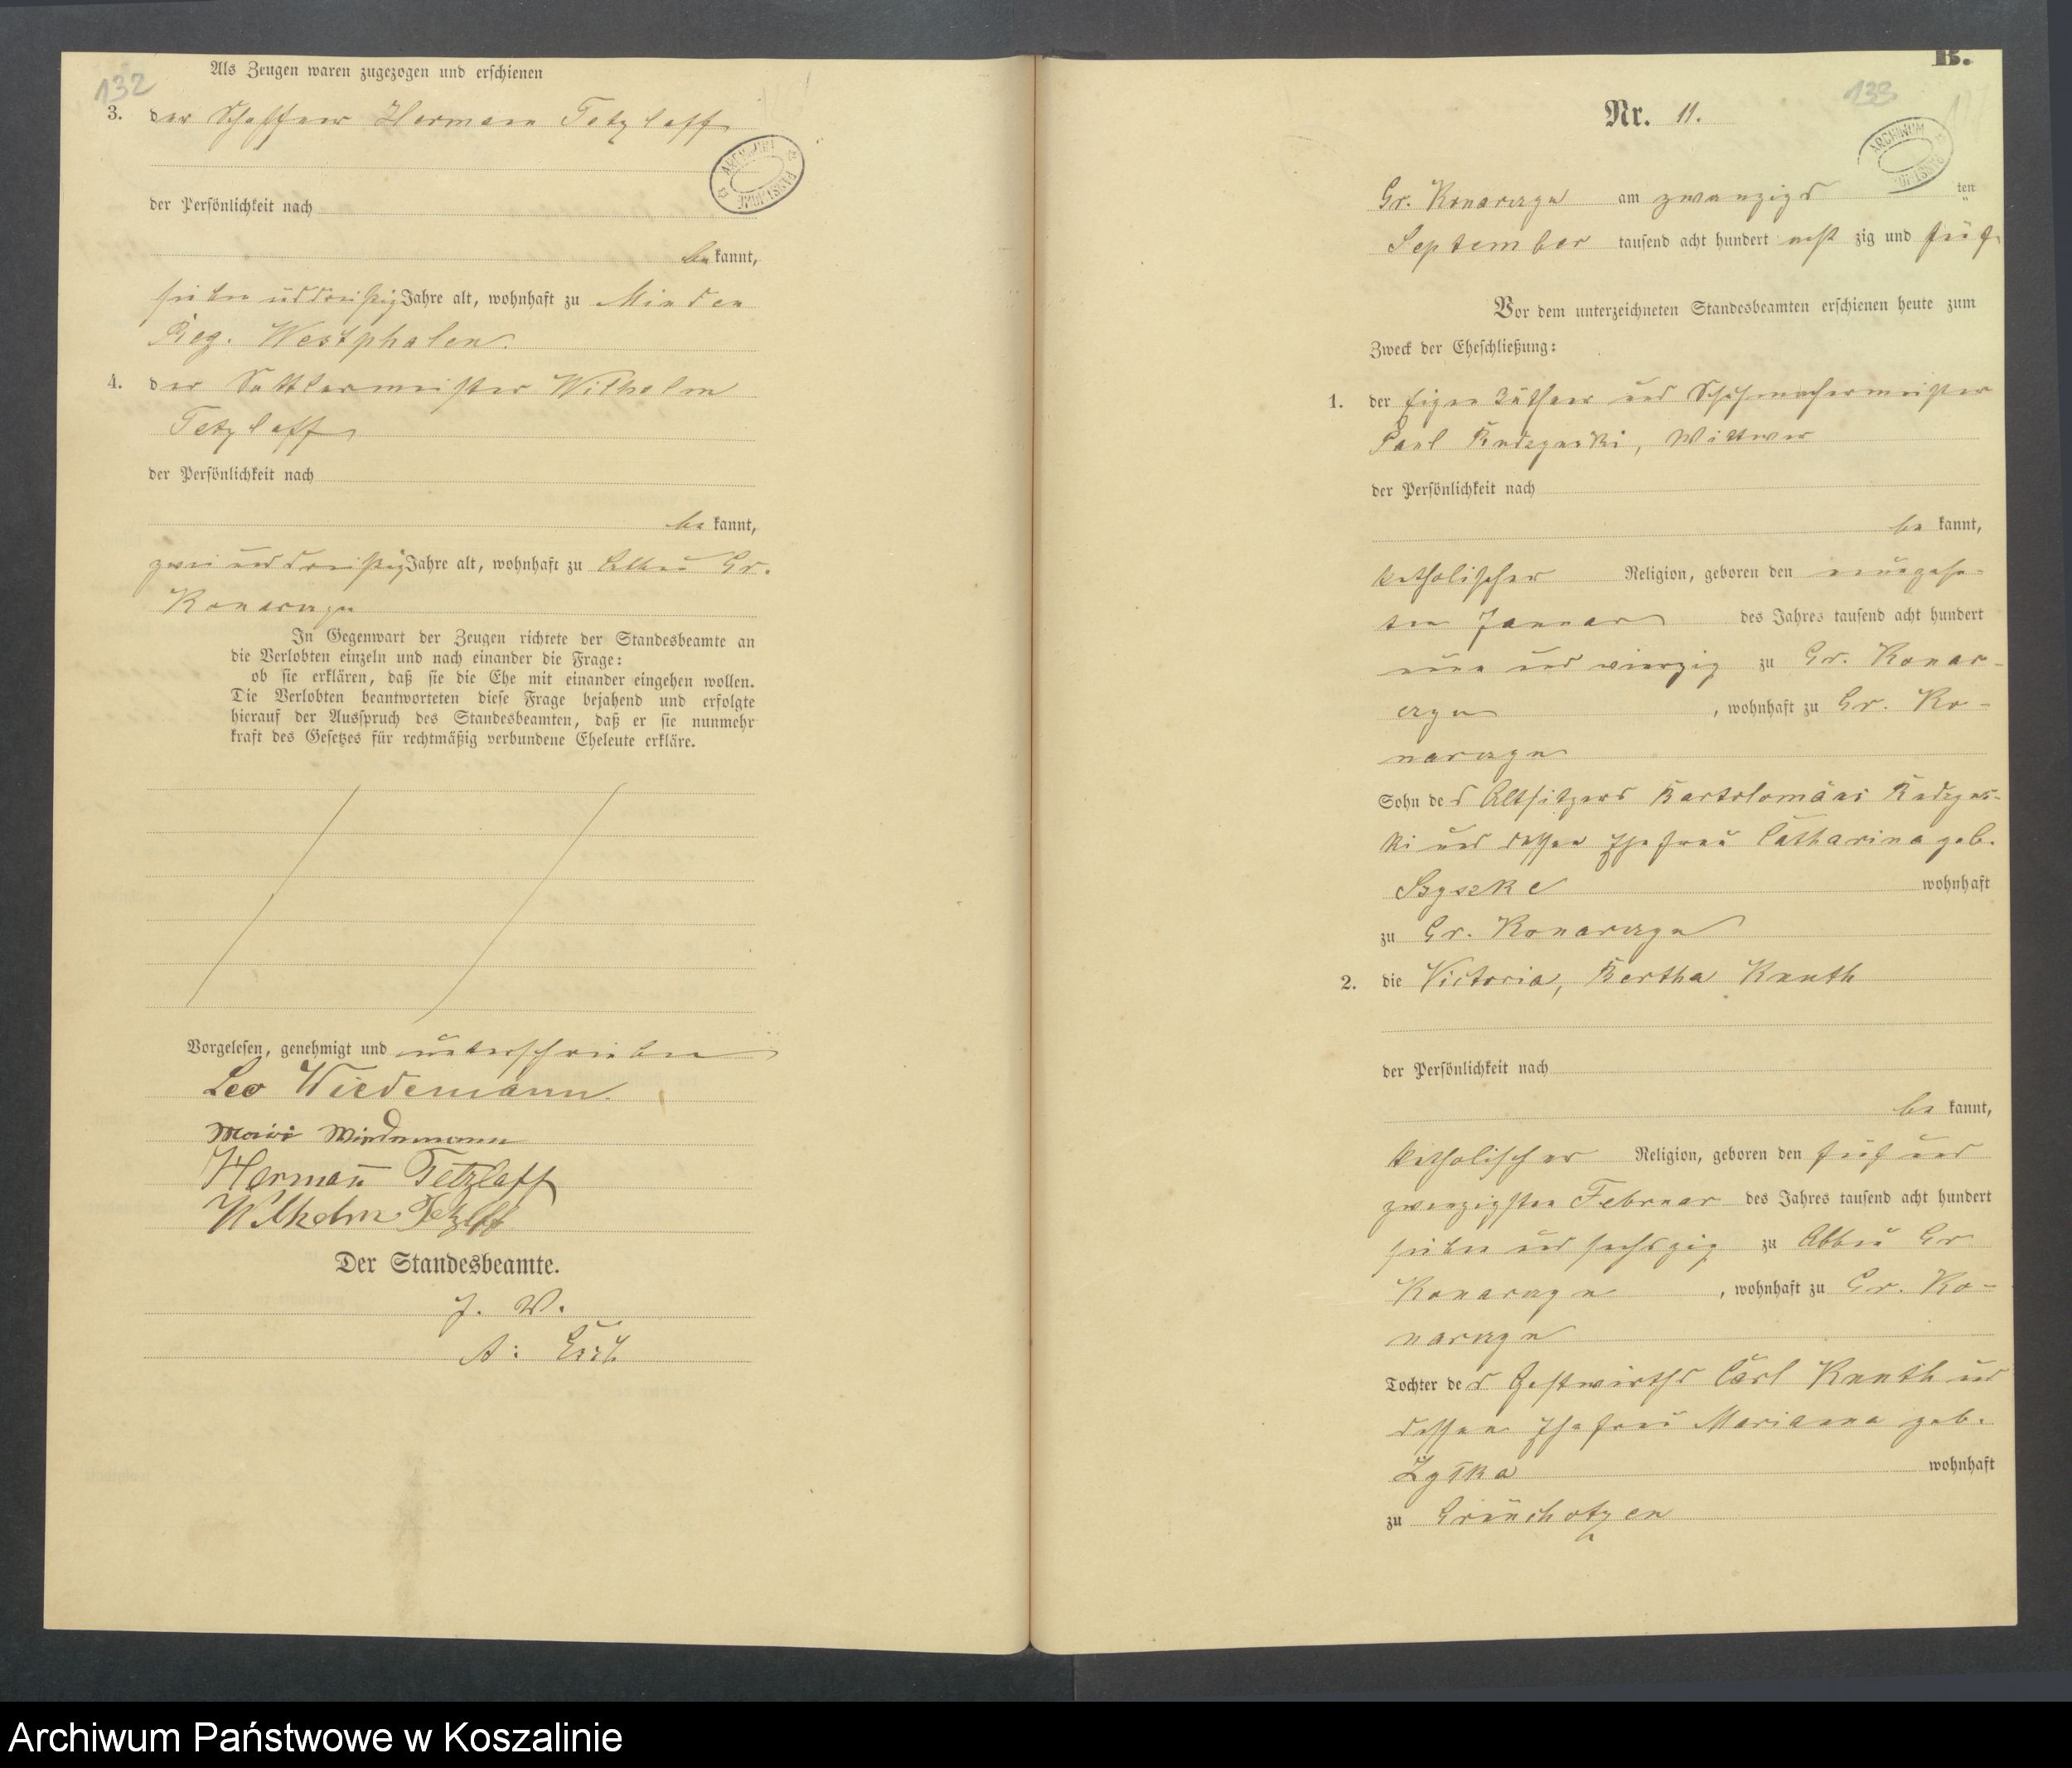 132
Als Zeugen waren zugezogen und erschienen
3. der Schaffner Hermann Tetzlaff
ARCHIWUM PAŃSTWOWE
der Persönlichkeit nach
be kannt,
sieben und dreißig Jahre alt, wohnhaft zu Minden
Reg. Westphalen.
4. der Sattlermeister Wilhelm
Tetzlaff
der Persönlichkeit nach
be kannt,
zwei und dreißig Jahre alt, wohnhaft zu Abbau Gr.
Konarczyn
In Gegenwart der Zeugen richtete der Standesbeamte an
die Verlobten einzeln und nach einander die Frage:
ob sie erklären, daß sie die Ehe mit einander eingehen wollen.
Die Verlobten beantworteten diese Frage bejahend und erfolgte
hierauf der Ausspruch des Standesbeamten, daß er sie nunmehr
kraft des Gesetzes für rechtmäßig verbundene Eheleute erkläre.
Vorgelesen, genehmigt und unterschrieben
Leo Wiedemann.
Marie Wiedemann
Hermann Tetzlaff
Wilhelm Tetzlaff
Der Standesbeamte.
J. V.
A:
B.
133
Nr. 11.
ARCHIWUM
Gr. Konarczyn am zwanzigs ten
September tausend acht hundert acht zig und fünf
Vor dem unterzeichneten Standesbeamten erschienen heute zum
Zweck der Eheschließung:
1. der Eigenkäthner und Schuhmachermeister
Paul Rudzynski, Wittwer
der Persönlichkeit nach
be kannt,
katholischer Religion, geboren den neunzehn-
ten Januar des Jahres tausend acht hundert
neun und vierzig zu Gr. Konar-
czyn, wohnhaft zu Gr. Ko-
narczyn
Sohn des Altsitzers Bartolomäus Rudzyns-
ki und dessen Ehefrau Catharina geb.
Szyszke wohnhaft
zu Gr. Konarczyn
2. die Victoria, Bertha Knuth
der Persönlichkeit nach
be kannt,
katholischer Religion, geboren den fünf und
zwanzigsten Februar des Jahres tausend acht hundert
sieben und sechszig zu Abbau Gr
Konarczyn, wohnhaft zu Gr. Ko-
narczyn
Tochter des Gastwirths Carl Knuth und
dessen Ehefrau Marianna geb.
wohnhaft
zu Grünchotzen
Archiwum Państwowe w Koszalinie